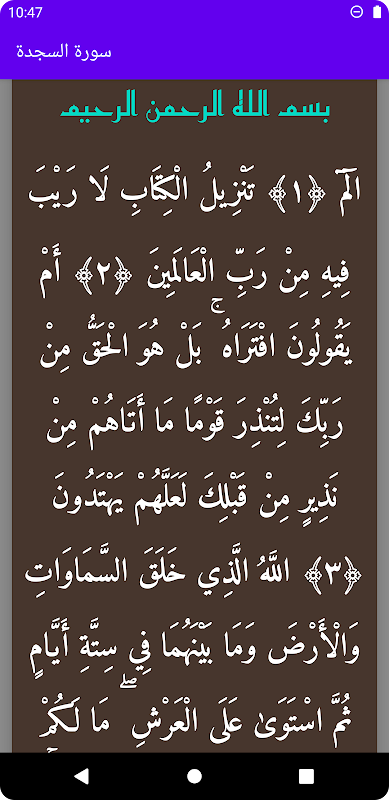 10:47
سورة السجدة
بسم الله الرحمن الرحيم
الٓمٓ ﴿١﴾ تَنْزِيلُ الْكِتَابِ لَا رَيْبَ
فِيهِ مِنْ رَبِّ الْعَالَمِينَ ﴿٢﴾ أَمْ
يَقُولُونَ افْتَرَاهُ ۚ بَلْ هُوَ الْحَقُّ مِنْ
رَبِّكَ لِتُنْذِرَ قَوْمًا مَا أَتَاهُمْ مِنْ
نَذِيرٍ مِنْ قَبْلِكَ لَعَلَّهُمْ يَهْتَدُونَ
﴿٣﴾ اللَّهُ الَّذِي خَلَقَ السَّمَاوَاتِ
وَالْأَرْضَ وَمَا بَيْنَهُمَا فِي سِتَّةِ أَيَّامٍ
ثُمَّ اسْتَوَىٰ عَلَى الْعَرْشِ ۖ مَا لَكُمْ